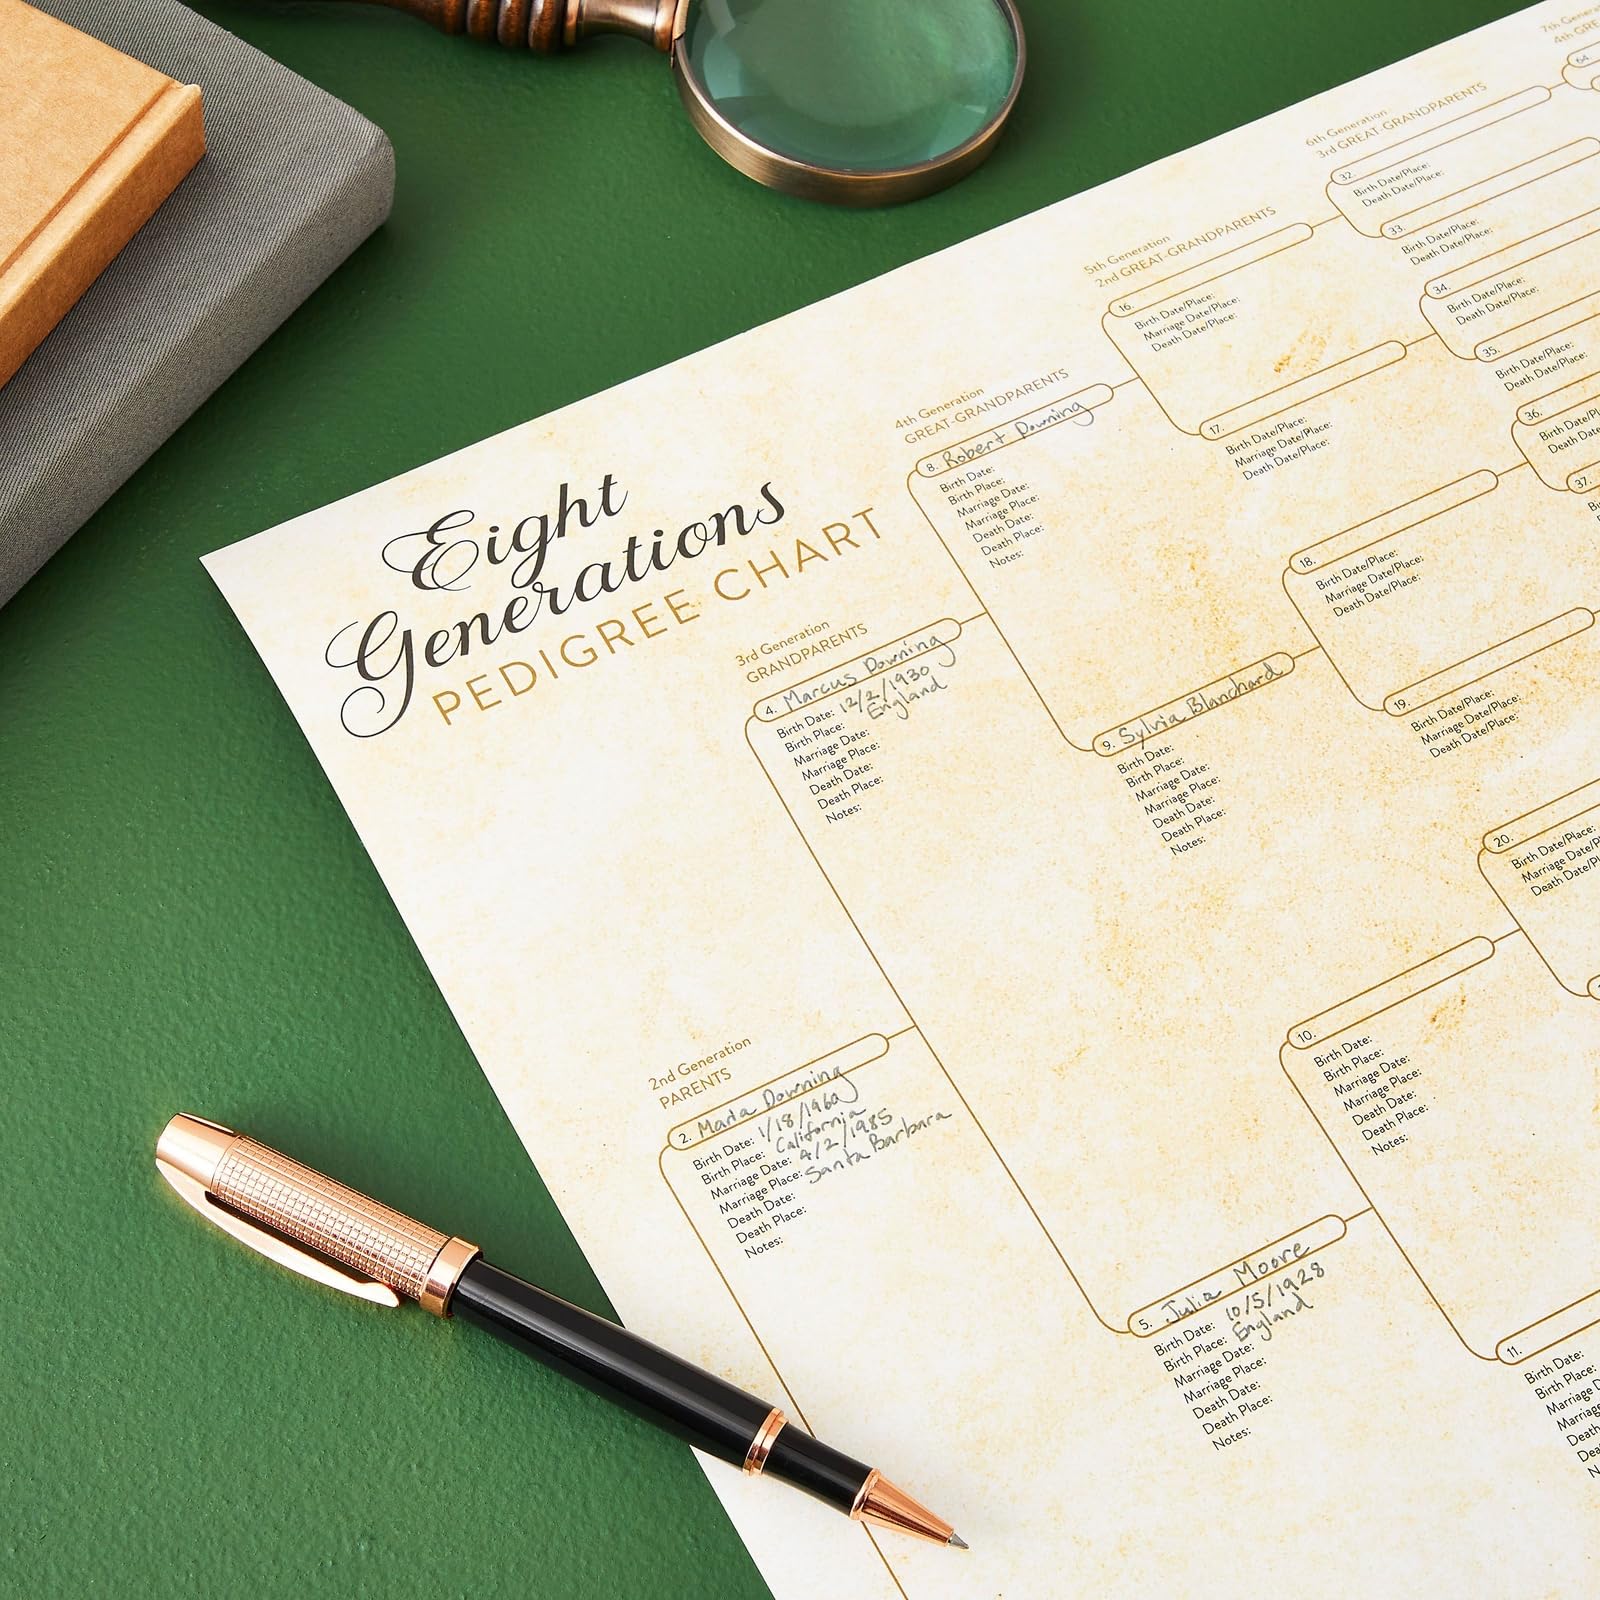 Eight
Generations
PEDIGREE CHART
2nd Generation
PARENTS
2. Maria Downing
Birth Date: 1/18/1960
Birth Place: California
Marriage Date: 4/2/1985
Marriage Place: Santa Barbara
Death Date:
Death Place:
Notes:
3rd Generation
GRANDPARENTS
4. Marcus Downing
Birth Date: 12/2/1930
Birth Place: England
Marriage Date:
Marriage Place:
Death Date:
Death Place:
Notes:
5. Julia Moore
Birth Date: 10/5/1928
Birth Place: England
Marriage Date:
Marriage Place:
Death Date:
Death Place:
Notes:
4th Generation
GREAT-GRANDPARENTS
8. Robert Downing
Birth Date:
Birth Place:
Marriage Date:
Marriage Place:
Death Date:
Death Place:
Notes:
9. Sylvia Blanchard
Birth Date:
Birth Place:
Marriage Date:
Marriage Place:
Death Date:
Death Place:
Notes:
10.
Birth Date:
Birth Place:
Marriage Date:
Marriage Place:
Death Date:
Death Place:
Notes:
11.
Birth Date:
Birth Place:
Marriage
Marriage
Death
5th Generation
2nd GREAT-GRANDPARENTS
16.
Birth Date/Place:
Marriage Date/Place:
Death Date/Place:
17.
Birth Date/Place:
Marriage Date/Place:
Death Date/Place:
18.
Birth Date/Place:
Marriage Date/Place:
Death Date/Place:
19.
Birth Date/Place:
Marriage Date/Place:
Death Date/Place:
20.
Birth Date/Place:
Marriage Date/
Death Date/
6th Generation
3rd GREAT-GRANDPARENTS
32.
Birth Date/Place:
Death Date/Place:
33.
Birth Date/Place:
Death Date/Place:
34.
Birth Date/Place:
Death Date/Place:
35.
Birth Date/Place:
Death Date/Place:
36.
Birth Date/
Death Date/
37.
7th
4th
64.